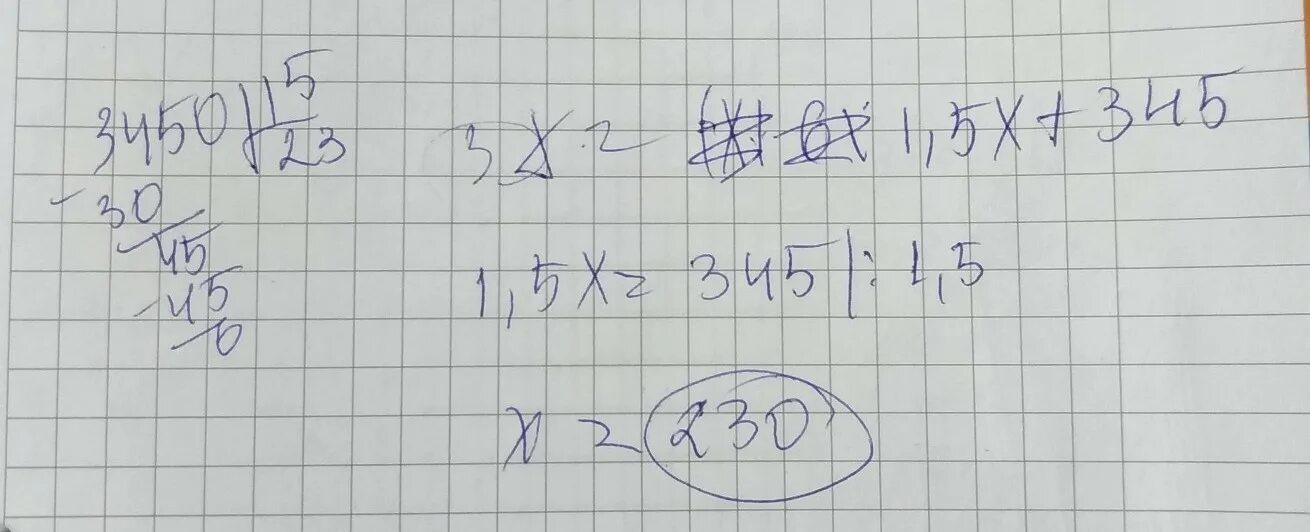 3450 15
23
- 30
45
- 45
0
3x = 1,5x + 345
1,5x = 345 |: 1,5
x = 230